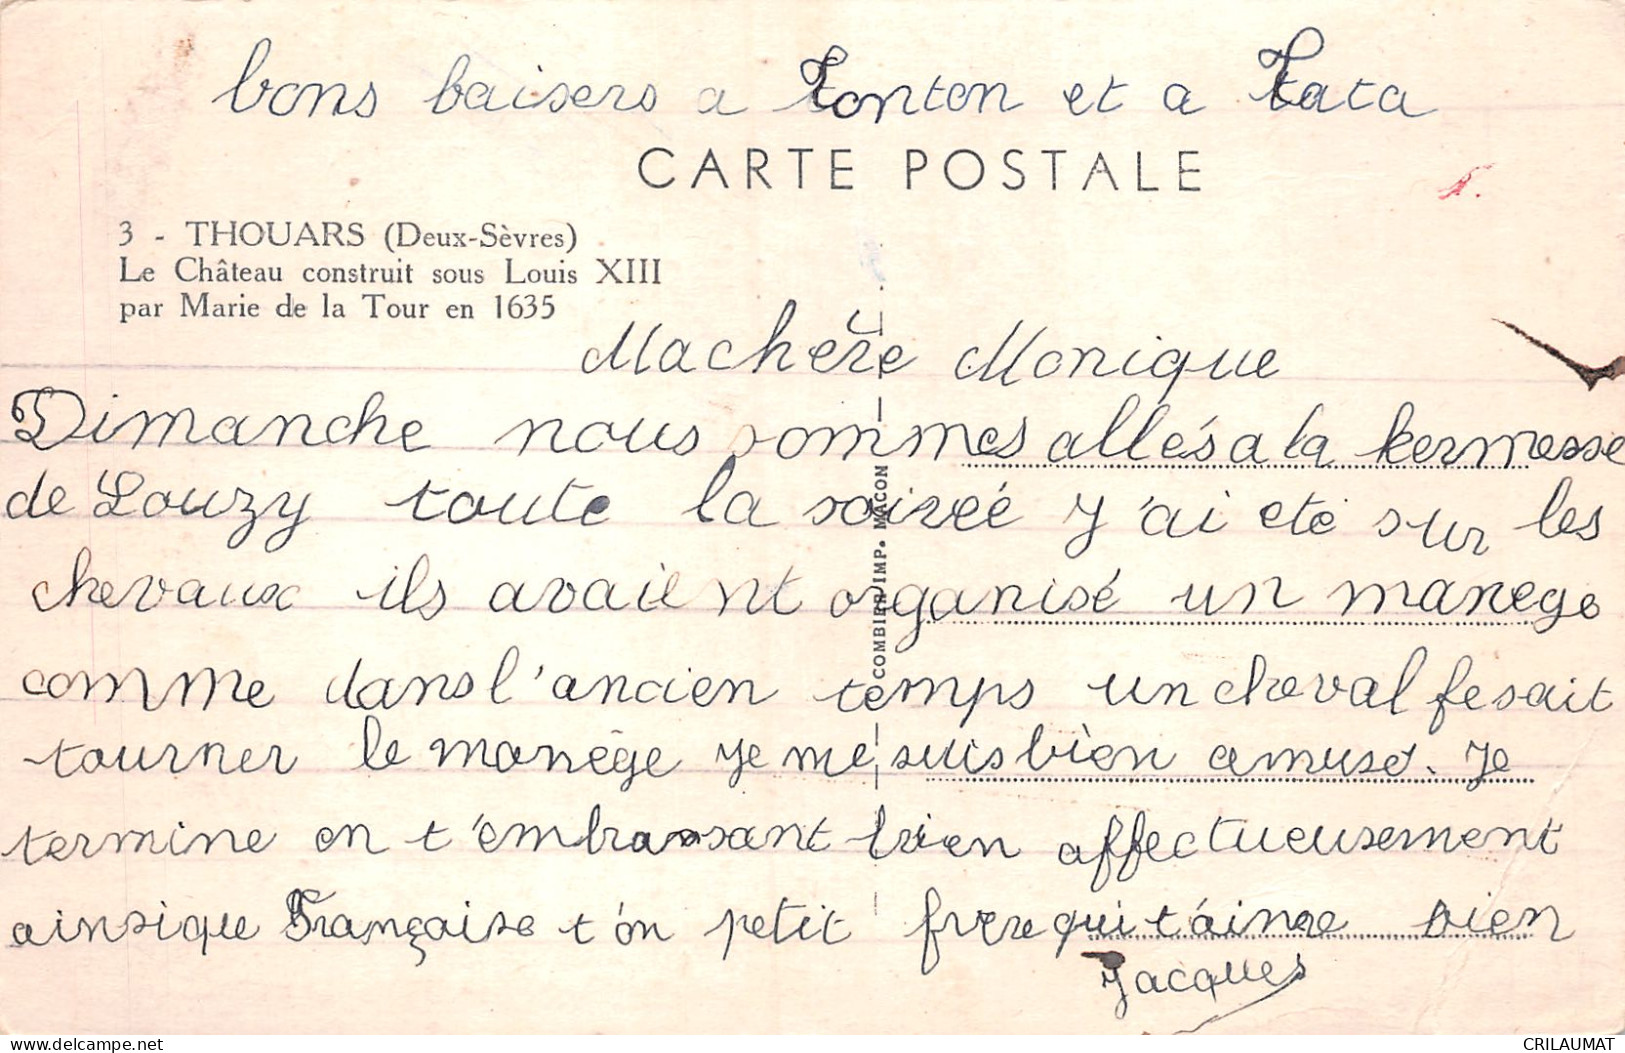 bons baisers a Tonton et a Tata
CARTE POSTALE
3 - THOUARS (Deux-Sèvres)
Le Château construit sous Louis XIII
par Marie de la Tour en 1635
Machère Monique
Dimanche nous sommes allés a la kermesse
de Louzy toute la soireé J'ai eté sur les
chevaux ils avaient organisé un manege
comme dans l'ancien temps un cheval fesait
tourner le manège je me suis bien amusé. Je
termine en t'embrassant bien affectueusement
ainsique Françoise t'on petit frère qui t'aime bien
Jacques
COMBIER IMP. MACON
Delcampe.net
CRILAUMAT